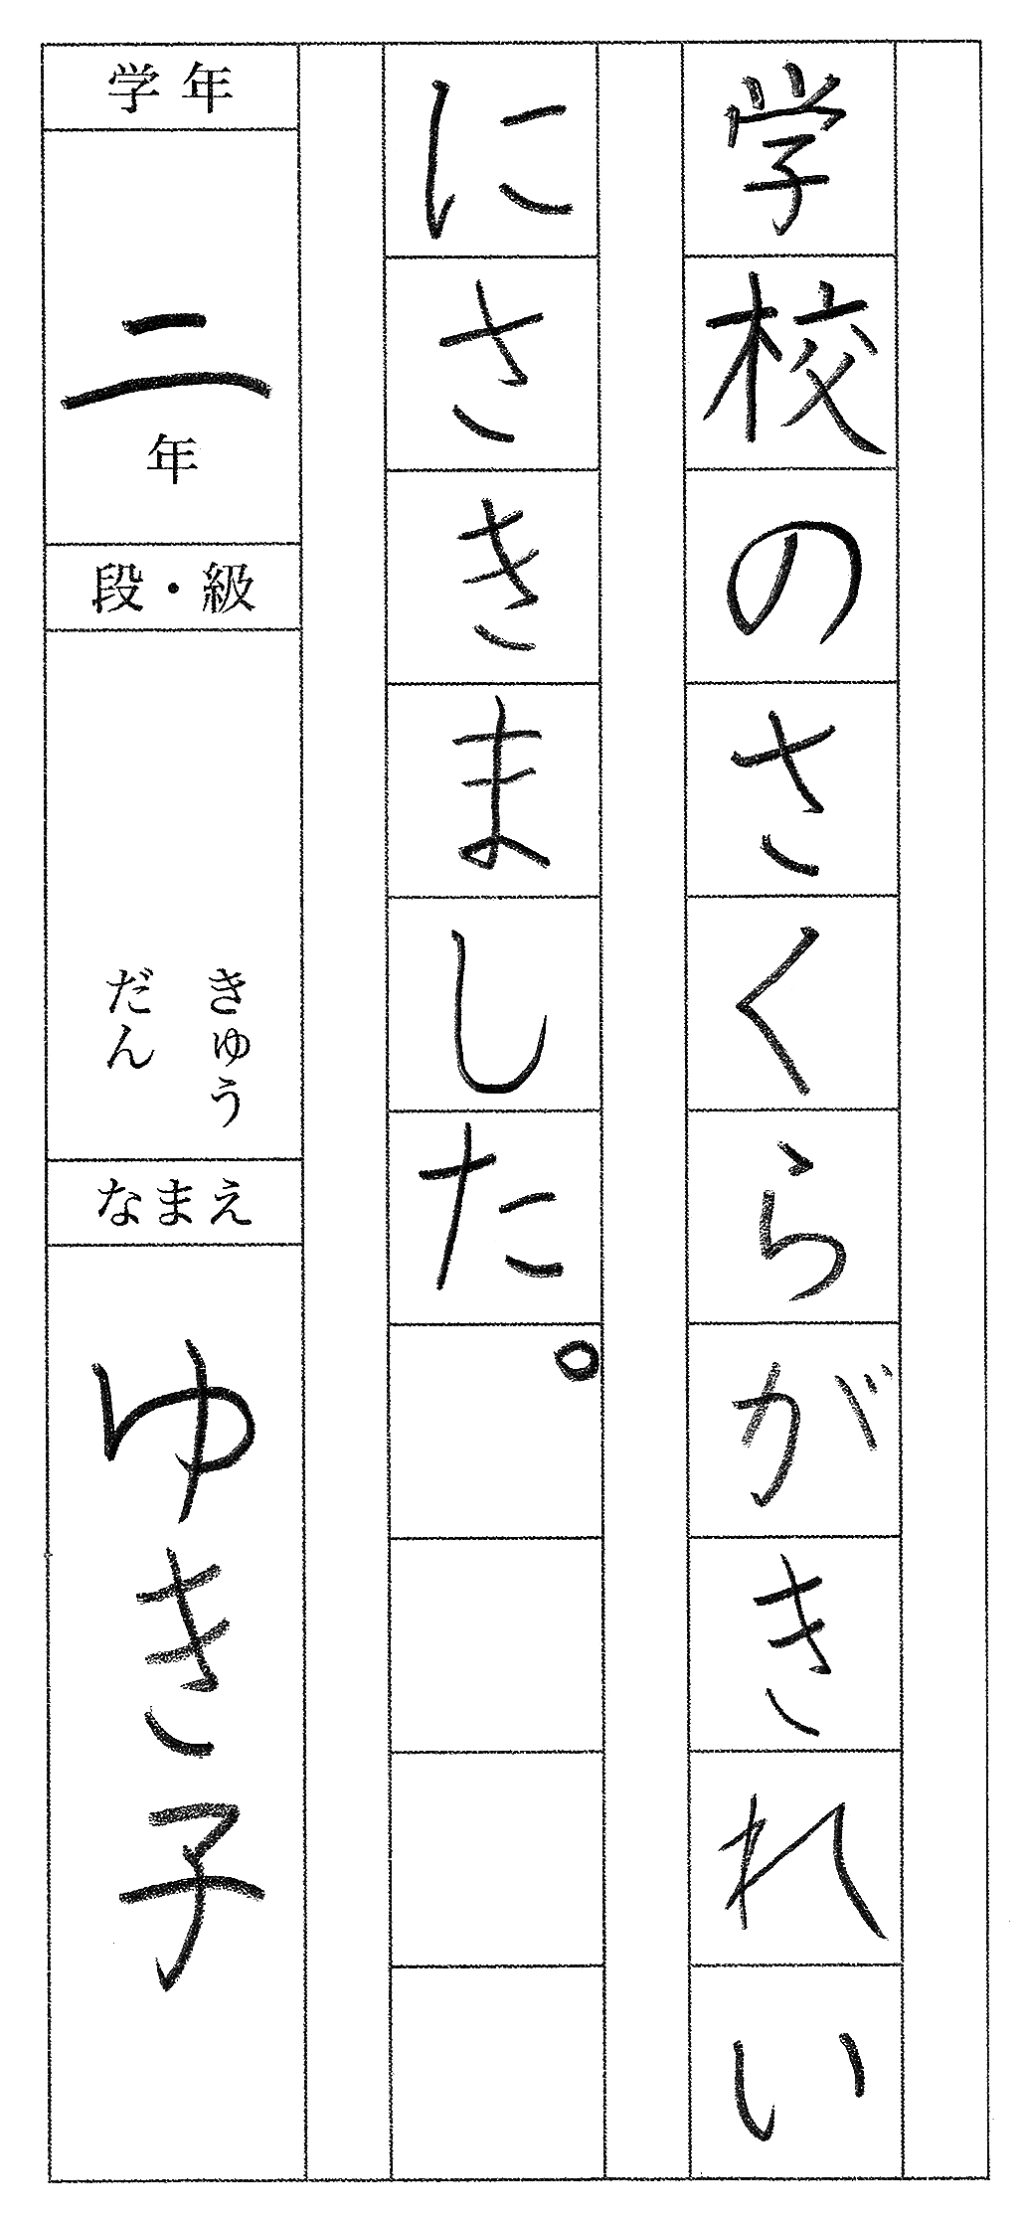 学校のさくらがきれい
にさきました。
学年
二
年
段・級
きゅう
だん
なまえ
ゆき子